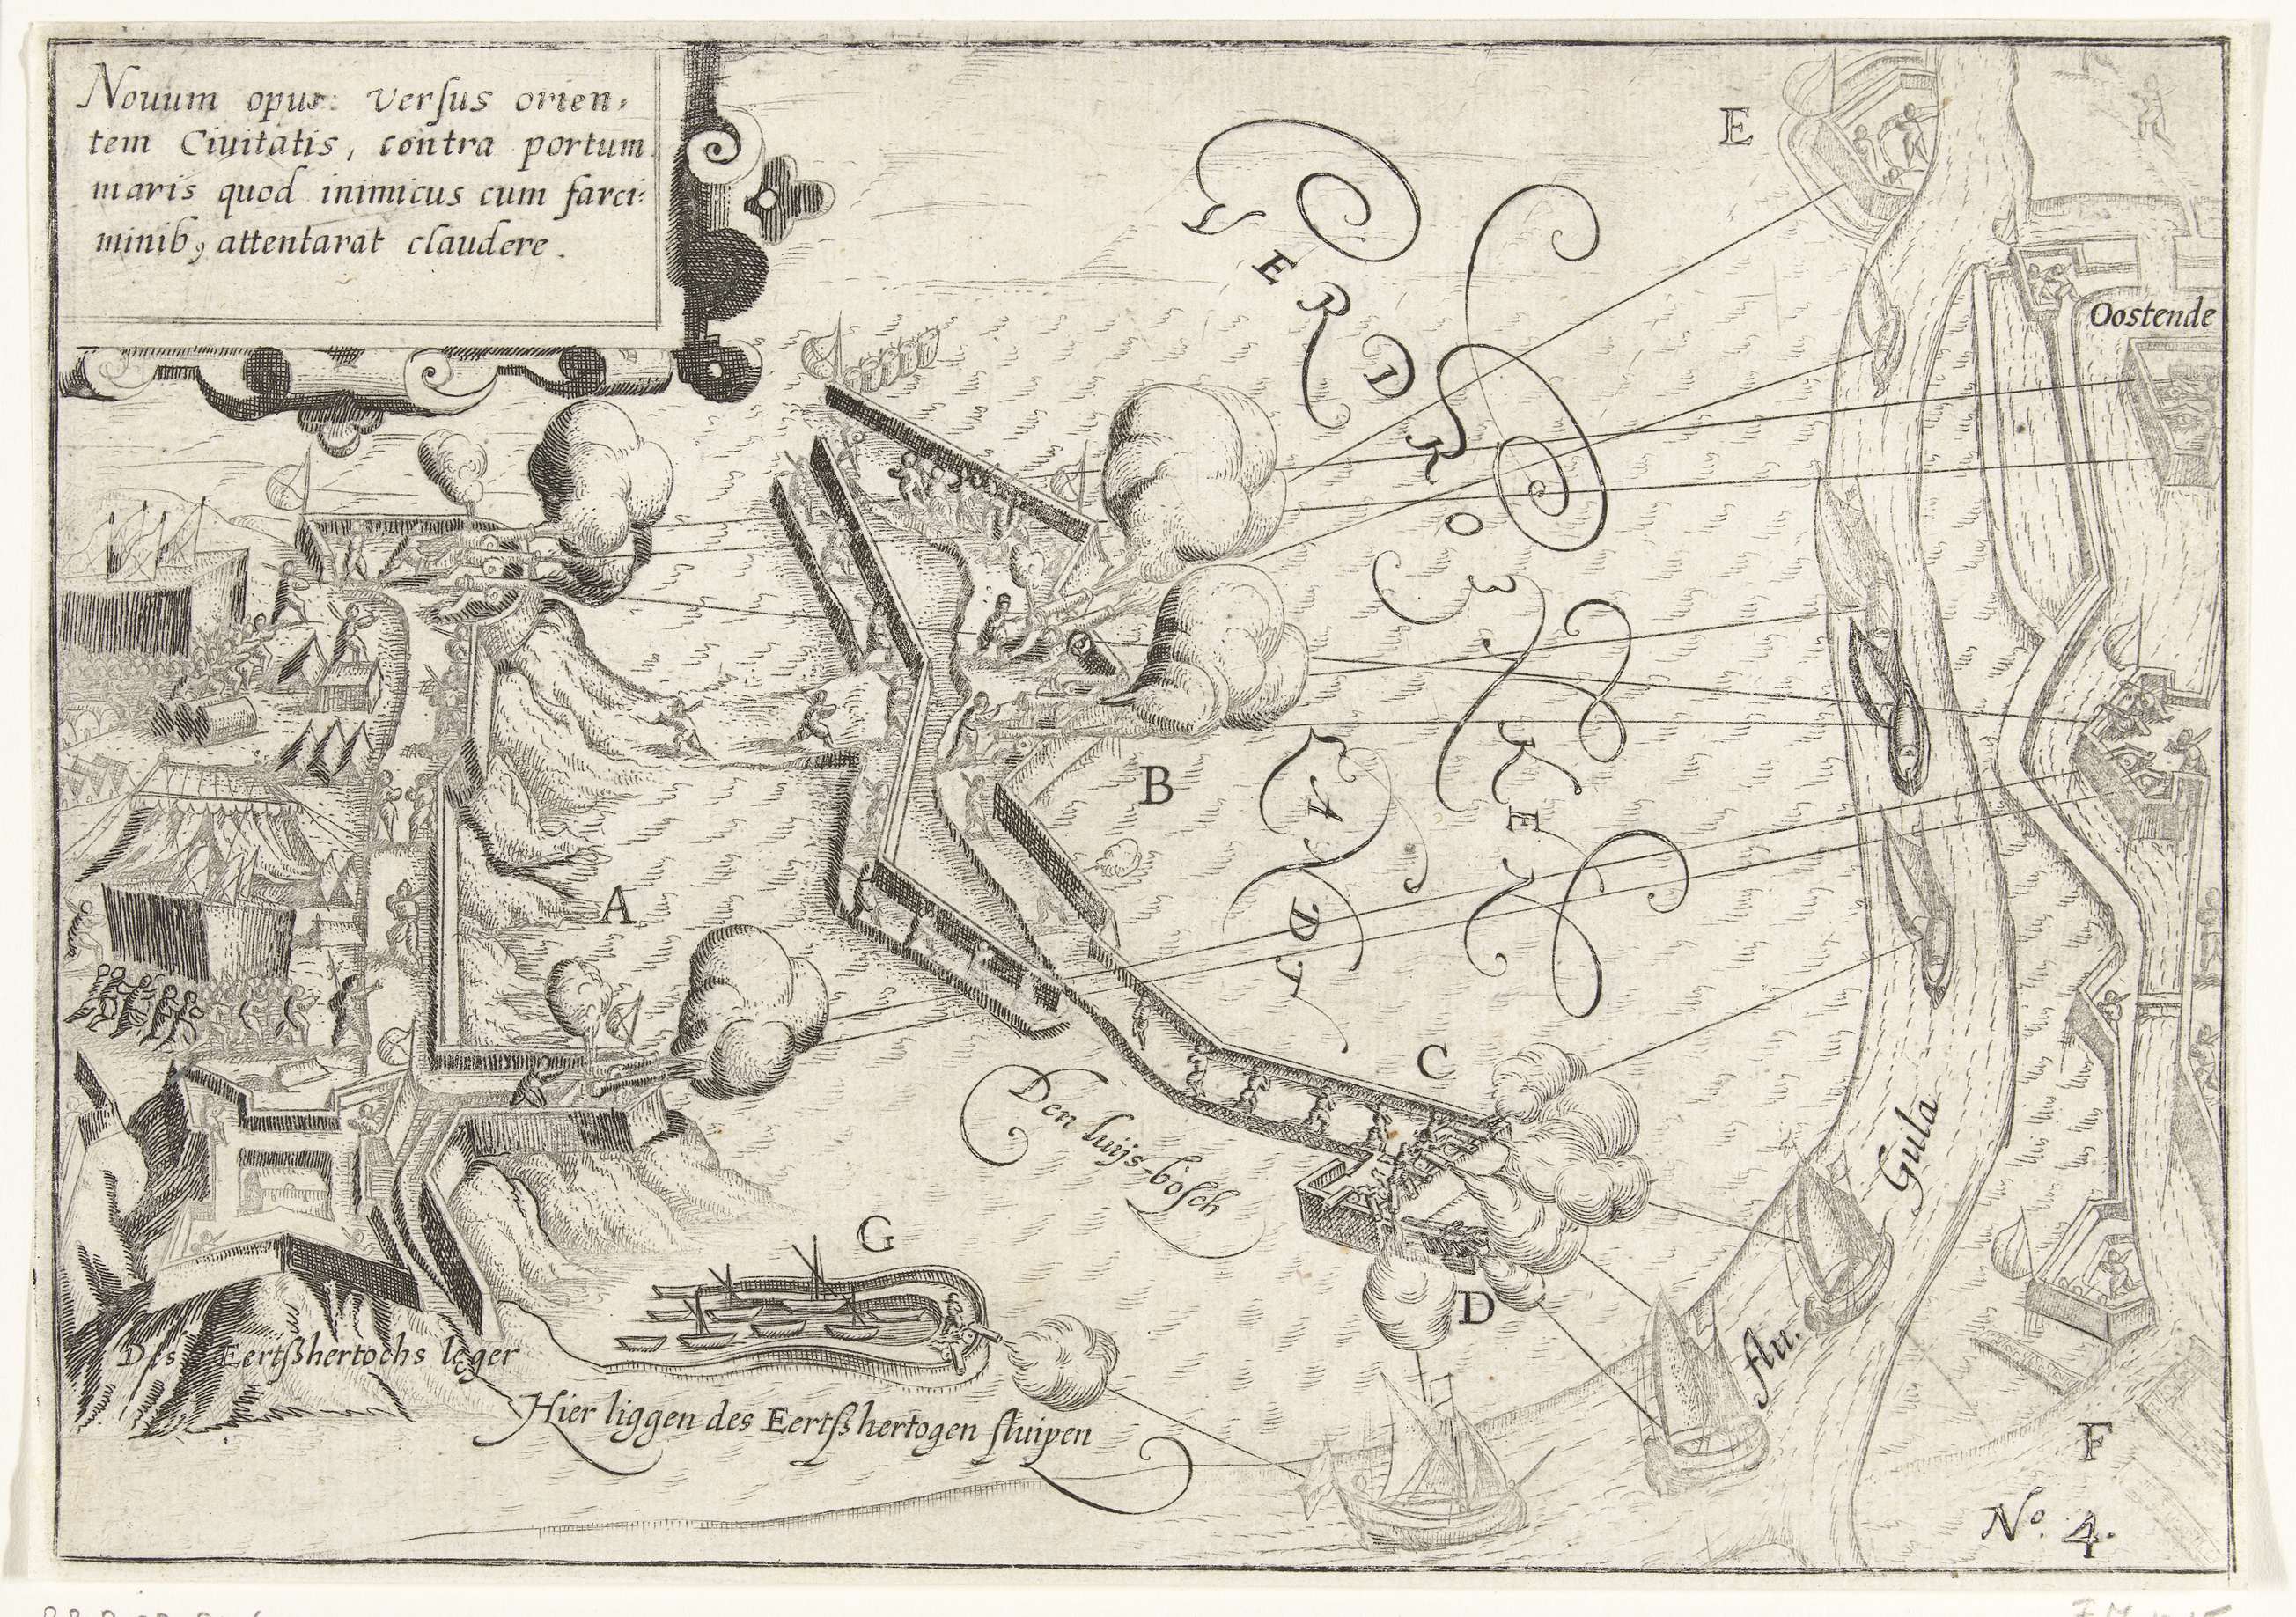 Nouum opus verſus orien⸗
tem Ciuitatis, contra portum
maris quod inimicus cum farci⸗
minibꝰ attentarat claudere.
E
Oostende
VERDRONCKE
LADT
B
A
C
Den luijs-boſch
Gula
flu.
G
D
Des Eertſhertochs leger
Hier liggen des Eertſhertogen ſluipen
F
No. 4.